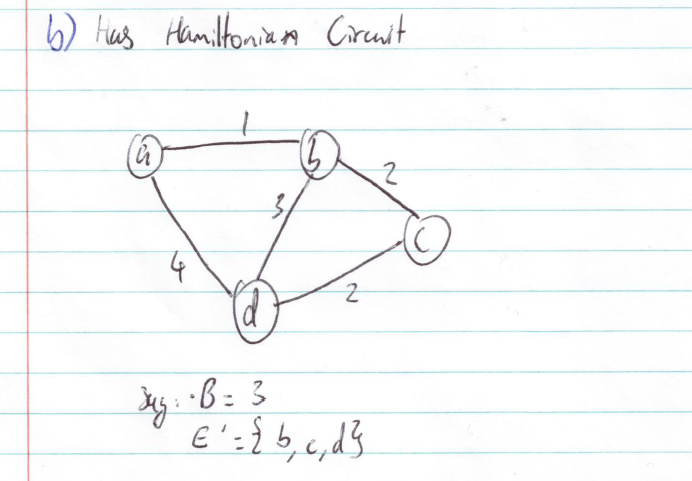 b) Has Hamiltonian Circuit
1
a
b
2
3
c
4
d
2
Say: · B = 3
E' = { b, c, d }